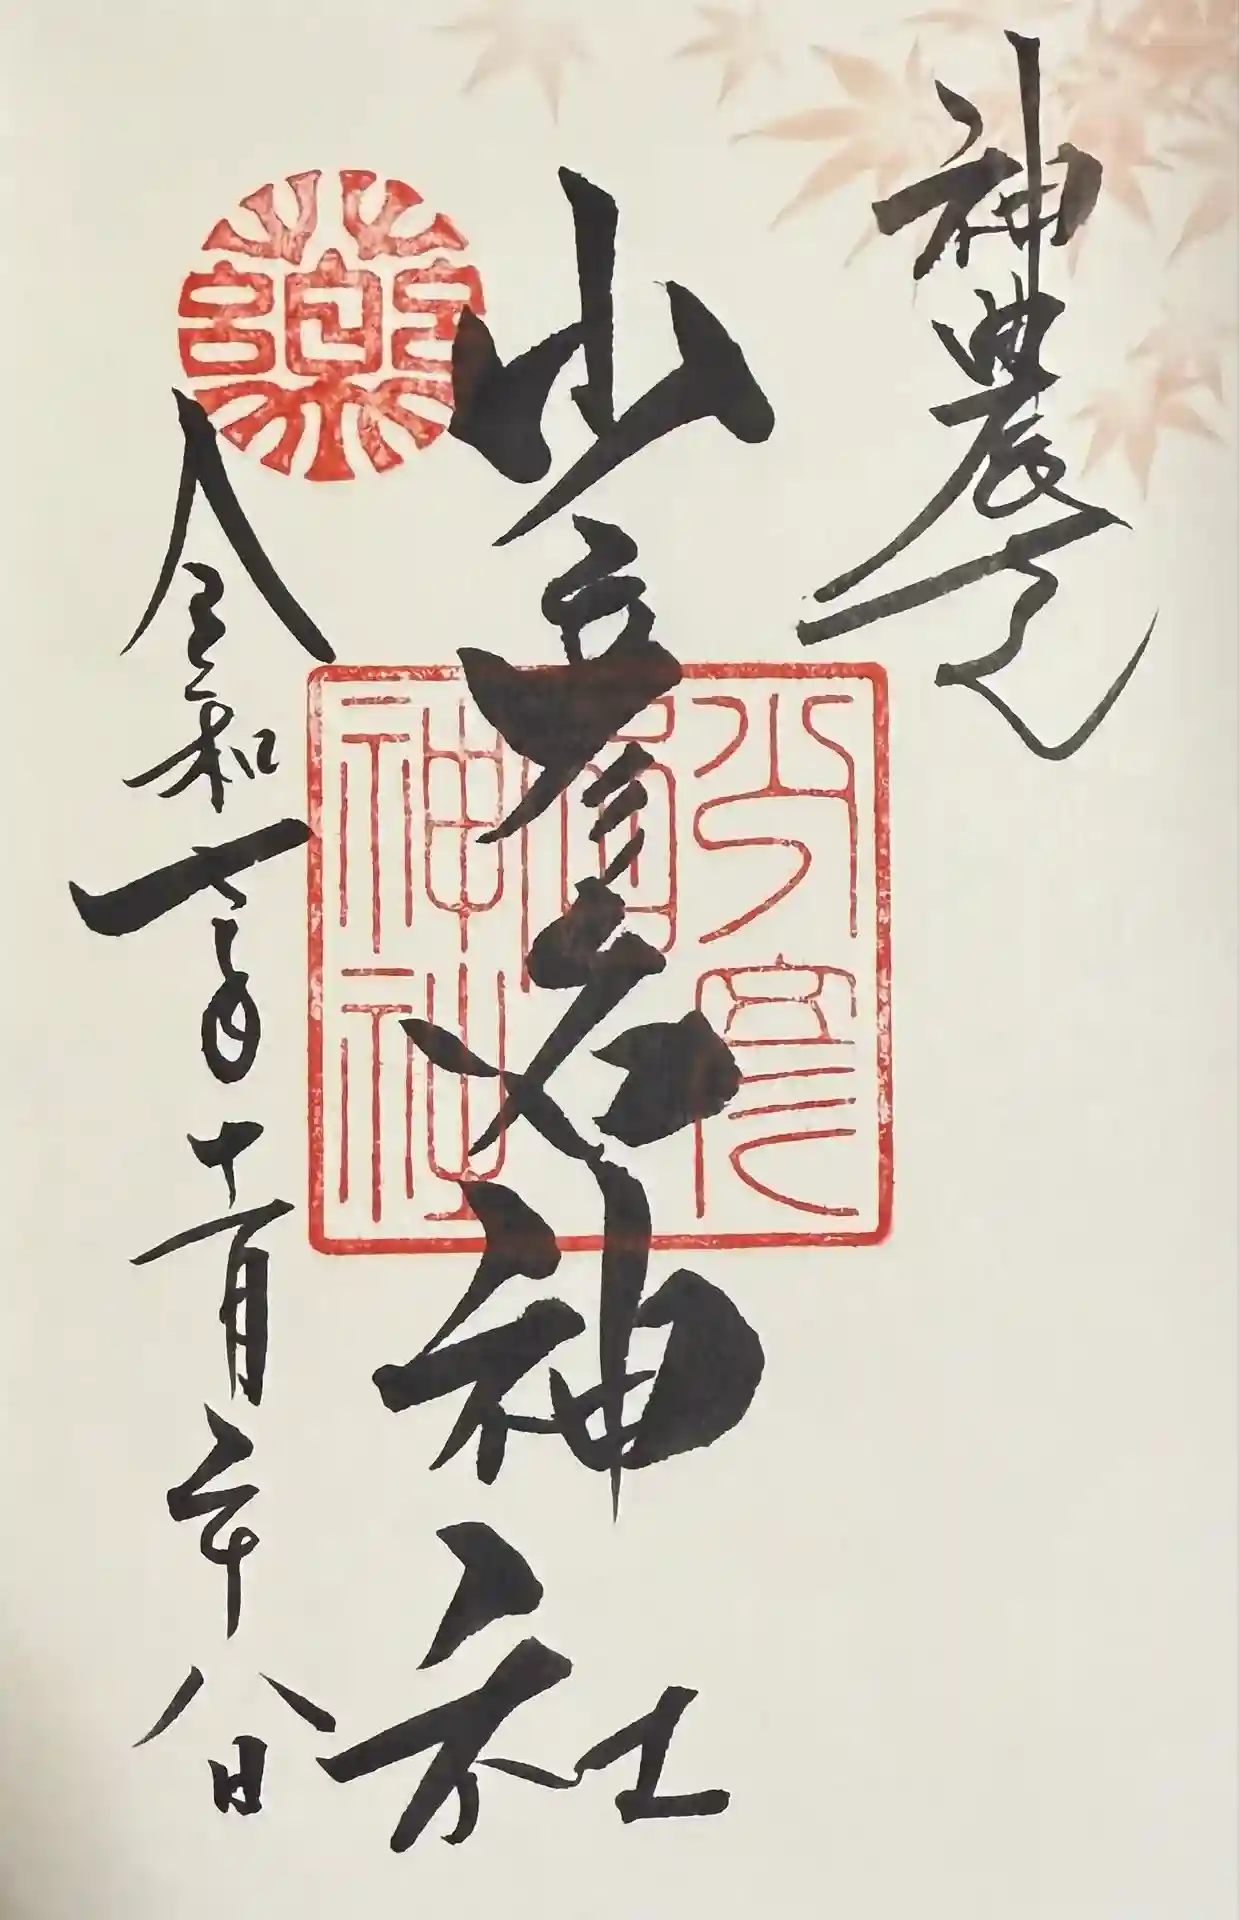 神農さん
少彦名神社
少彦名神社
薬
令和七年十一月二十八日